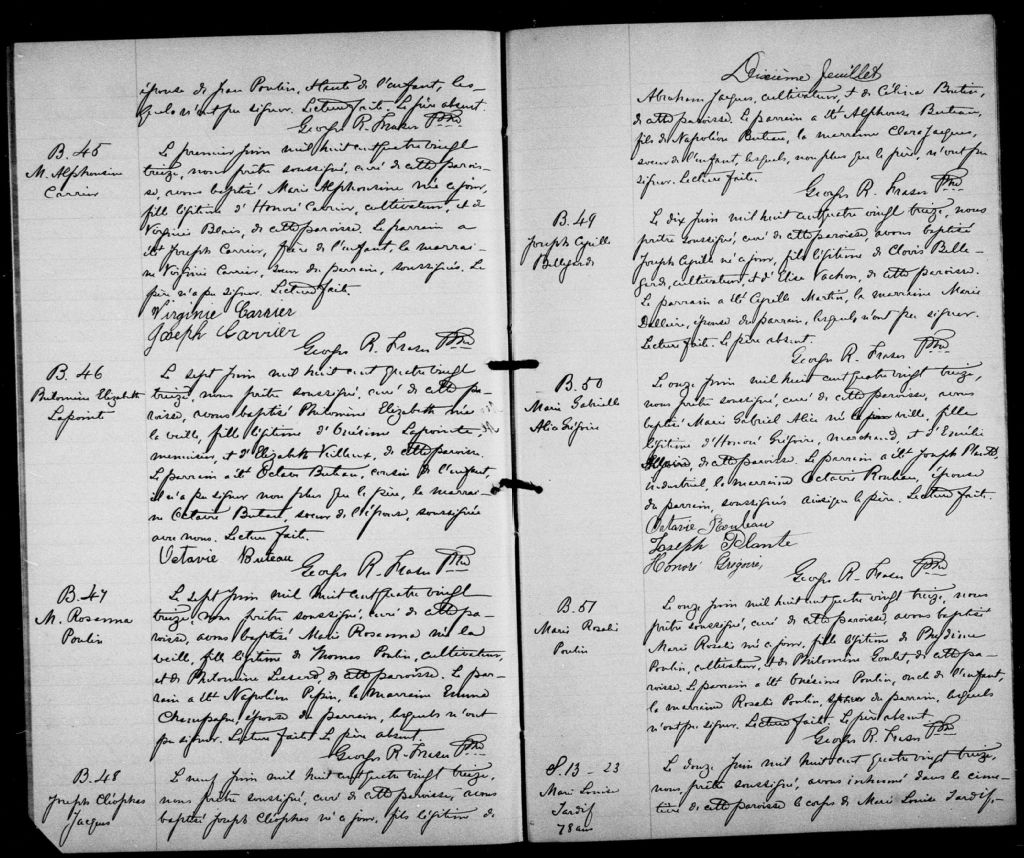 épouse de Jean Poulin, tante de l'enfant, les-
quels n'ont pu signer. Lecture faite. Le père absent.
George R. Fraser Ptre
B. 45
M. Alphonsine
Carrier
Le premier Juin mil huit cent quatre vingt
treize, nous prêtre soussigné, curé de cette parois-
se, avons baptisé Marie Alphonsine née ce jour,
fille légitime d'Honoré Carrier, cultivateur, et de
Virginie Blais, de cette paroisse. Le parrain a
été Joseph Carrier, frère de l'enfant, la marrai-
ne Virginie Carrier, soeur du parrain, soussignés. Le
père n'a pu signer. Lecture faite.
Virginie Carrier
Joseph Carrier
George R. Fraser Ptre
B. 46
Philomine Elizabeth
Lapointe
Le sept Juin mil huit cent quatre vingt
treize, nous prêtre soussigné, curé de cette pa-
roisse, avons baptisé Philomine Elizabeth née
la veille, fille légitime d'Onésime Lapointe,
menuisier, et d'Elizabeth Villeux, de cette paroisse.
Le parrain a été Octave Buteau, cousin de l'enfant,
il n'a pu signer non plus que le père, la marrai-
ne Octavie Buteau, soeur de l'épouse, soussignée
avec nous. Lecture faite.
Octavie Buteau
George R. Fraser Ptre
B. 47
M. Rosanna
Poulin
Le sept Juin mil huit cent quatre vingt
treize, nous prêtre soussigné, curé de cette pa-
roisse, avons baptisé Marie Rosanna née la
veille, fille légitime de Thomas Poulin, cultivateur,
et de Philomine Lessard, de cette paroisse. Le par-
rain a été Napoléon Pepin, la marraine Emma
Champagne, épouse du parrain, lesquels n'ont
pu signer. Lecture faite. Le père absent.
George R. Fraser Ptre
B. 48
Joseph Cléophas
Jacques
Le neuf Juin mil huit cent quatre vingt treize,
nous prêtre soussigné, curé de cette paroisse, avons
baptisé Joseph Cléophas né ce jour, fils légitime de
Dixième feuillet
Abraham Jacques, cultivateur, et de Célina Butin,
de cette paroisse. Le parrain a été Alphonse Buteau,
fils de Napoléon Buteau, la marraine Clara Jacques,
soeur de l'enfant, lesquels, non plus que le père, n'ont pu
signer. Lecture faite.
George R. Fraser Ptre
B. 49
Joseph Cyrille
Bellegarde
Le dix Juin mil huit cent quatre vingt treize, nous
prêtre soussigné, curé de cette paroisse, avons baptisé
Joseph Cyrille né ce jour, fils légitime de Clovis Belle-
garde, cultivateur, et d'Elise Vachon, de cette paroisse.
Le parrain a été Cyrille Martin, la marraine Marie
Dallaire, épouse du parrain, lesquels n'ont pu signer.
Lecture faite. Le père absent.
George R. Fraser Ptre
B. 50
Marie Gabrielle
Alice Grégoire
Le onze Juin mil huit cent quatre vingt treize,
nous prêtre soussigné, curé de cette paroisse, avons
baptisé Marie Gabriel Alice née la veille, fille
légitime d'Honoré Grégoire, marchand, et d'Emélie
de cette paroisse. Le parrain a été Joseph Plante,
industriel, la marraine Octavie Rouleau, épouse
du parrain, soussignés ainsi que le père. Lecture faite.
Octavie Rouleau
Joseph Plante
Honoré Grégoire,
George R. Fraser Ptre
B. 51
Marie Rosalie
Poulin
Le onze Juin mil huit cent quatre vingt treize, nous
prêtre soussigné, curé de cette paroisse, avons baptisé
Marie Rosalie née ce jour, fille légitime de
Poulin, cultivateur, et de Philomine Goulet, de cette pa-
roisse. Le parrain a été Onésime Poulin, oncle de l'enfant,
la marraine Rosalie Poulin, du parrain, lesquels
n'ont pu signer. Lecture faite. Le père absent.
George R. Fraser Ptre
S. 13 - 23
Marie Louise
Tardif
78 ans
Le douze Juin mil huit cent quatre vingt treize,
nous prêtre soussigné, avons inhumé dans le cime-
tière de cette paroisse le corps de Marie Louise Tardif,